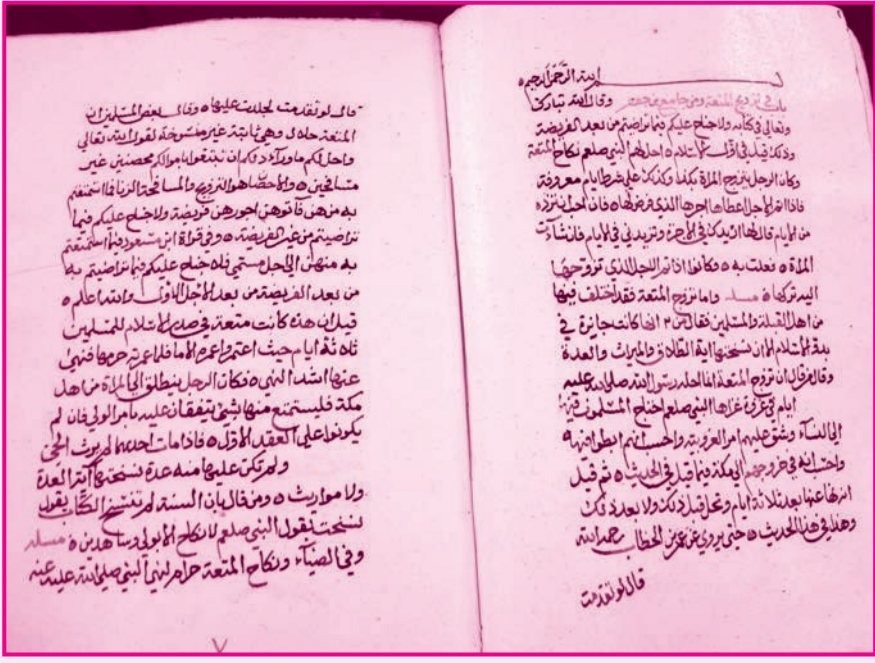 بسم الله الرحمن الرحيم
باب في تزويج المتعة ومن جامع من وقال الله تبارك
وتعالى في كتابه ولا جناح عليكم فيما تراضيتم من بعد الفريضة
وذلك قيل في اول الاسلام ه احل لهم النبي صلعم نكاح المتعة
وكان الرجل يتزوج المراة بكذا وكذا على شرط ايام معروفة
فاذا اتم الاجل اعطاها اجرها الذي فرض لها ه فان احب ان تزده
من الايام قال لها ازيدك في الاجرة وتزيديني في الايام فان شاءت
المراة ه فعلت به ه وكانوا اذا تم الاجل الذي تزوجها
اليه تركها ه مسلة واما تزوج المتعة فقد اختلف فيها
من اهل القبلة والمسلمين فقال من انها كانت جايزة في
بدو الاسلام الا ان نسختها اية الطلاق والميراث والعدة
وقال من قال ان تزوج المتعة انما احله رسول الله صلى الله عليه
ايام في غزوة غزاها النبي صلعم احتاج المسلمون فيها
الى النساء وشق عليهم امر العزوبية واحسب انهم ابطوا فيها ه
واحسب انه في خروجهم الى مكة فيما قيل في الحديث ه ثم قيل
انه نها عنها بعد ثلاثة ايام ولم تحل قبل ذلك ولا بعد ذلك
وهذا في هذا الحديث ه حتى يروى عن عمر بن الخطاب رحمه الله
قال لو تقدمت
قال لو تقدمت لجلدت عليها ه وقال بعض المسلمين ان
المتعة حلال وهي ثابتة غير منسوخة لقول الله تعالى
واحل لكم ما وراء ذلكم ان تبتغوا باموالكم محصنين غير
مسافحين ه والاحصان هو التزويج والمسافحة الزنا فما استمتعتم
به منهن فآتوهن اجورهن فريضة ولا جناح عليكم فيما
تراضيتم من غير الفريضة ه وفي قراة ابن مسعود فما استمتعتم
به منهن الى اجل مسمى فلا جناح عليكم فيما تراضيتم به
من بعد الفريضة من بعد الاجل الاول والله اعلم ه
قيل ان هذه كانت متعة في صدر الاسلام للمسلمين
ثلاثة ايام حيث اعتمر واعمره الاما فلما عربة حرمها فنهى
عنها اشد النهي ه فكان الرجل ينطلق الى المراة من اهل
مكة فليستمتع منها بشيء يتفقان عليه بامر الولي فان لم
يكونوا على العقد الاول ه فاذا مات احدهما لم يورث الحي
ولم تكن عليها منه عدة نسختها آية العدة
ولا مواريث ه ومن قال بان السنة لم تنسخ الكتاب يقول
نسخت بقول النبي صلعم لا نكاح الا بولي وشاهدين ه مسلة
وفي الضياء ونكاح المتعة حرام لنهي النبي صلى الله عليه عنه
٧